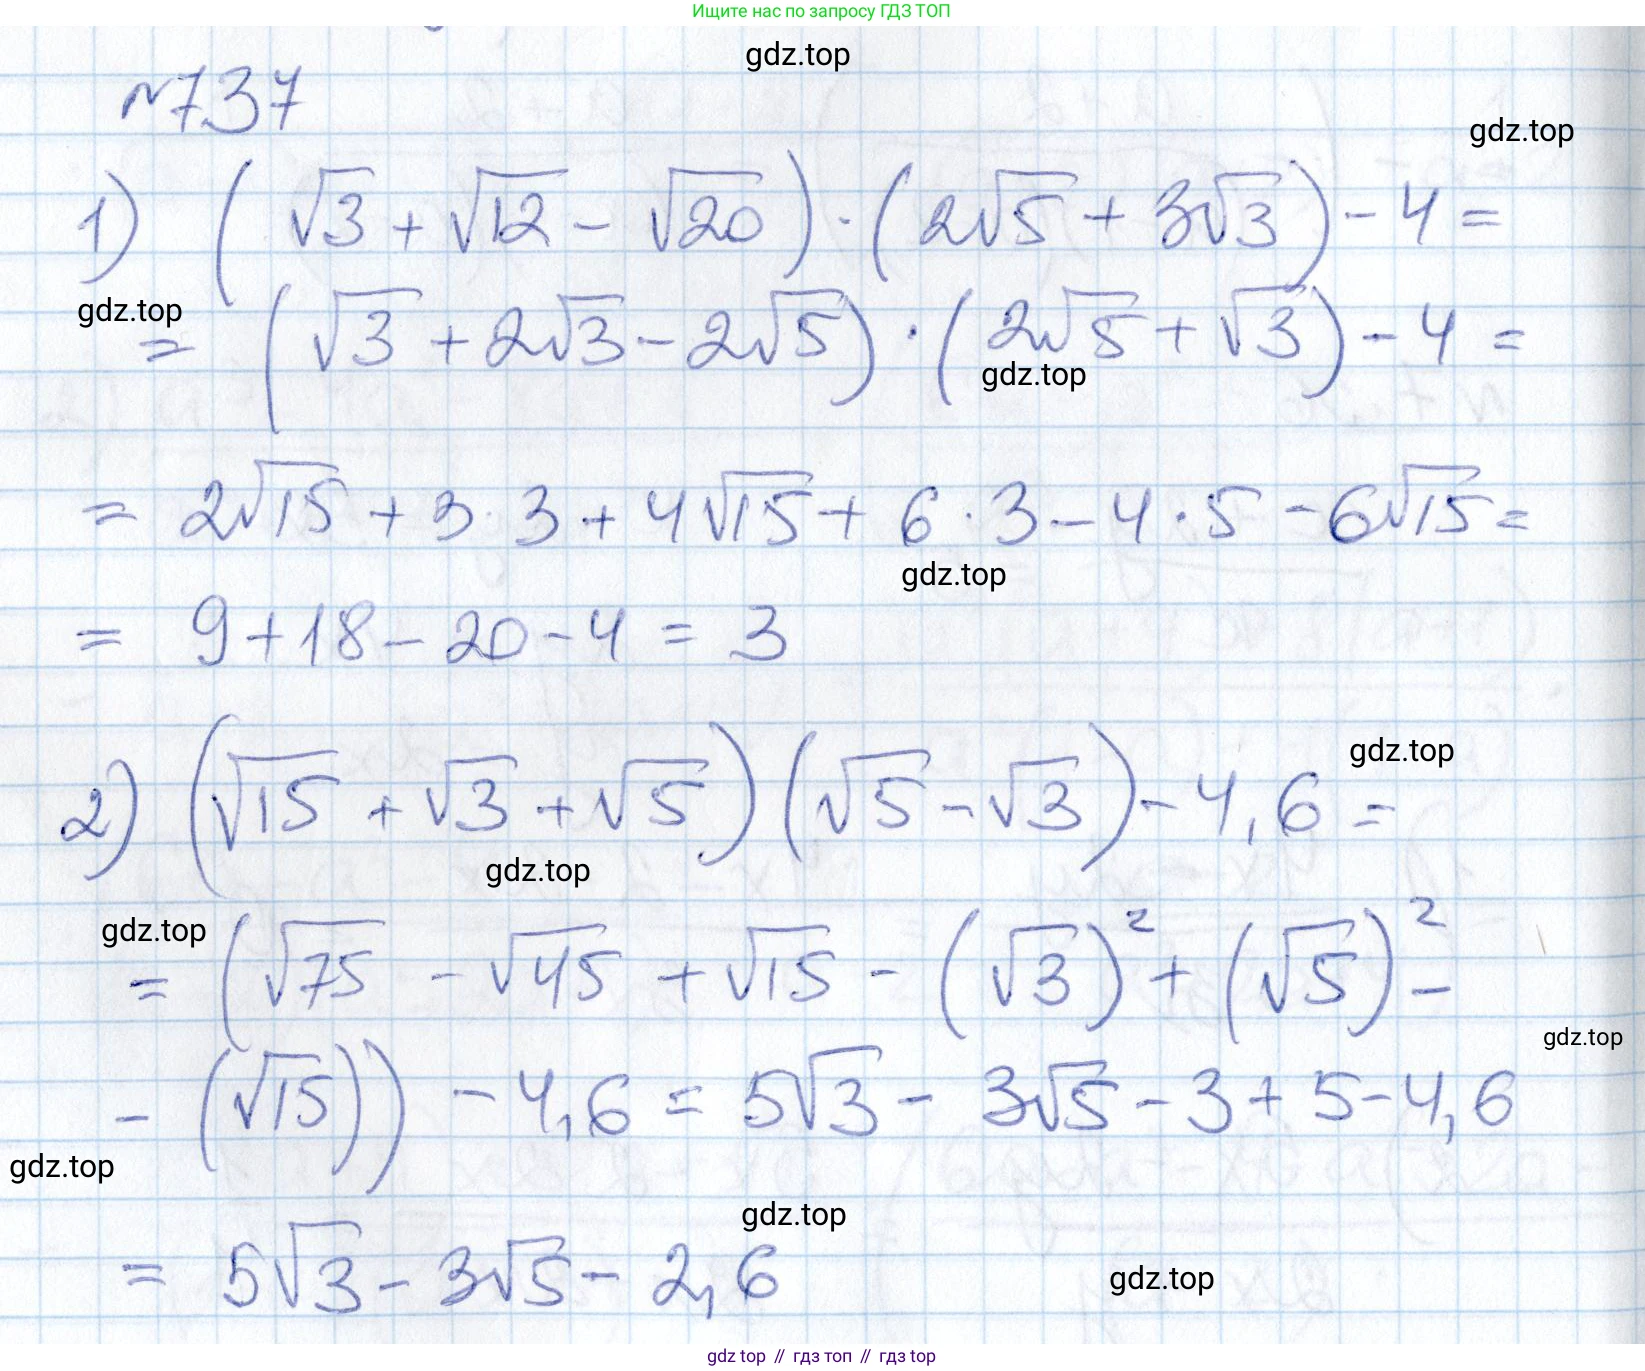 Ищите нас по запросу ГДЗ ТОП
gdz.top
№737
gdz.top
1) (√3 + √12 - √20) · (2√5 + 3√3) - 4 =
gdz.top
= (√3 + 2√3 - 2√5) · (2√5 + √3) - 4 =
gdz.top
= 2√15 + 3·3 + 4√15 + 6·3 - 4·5 - 6√15 =
gdz.top
= 9 + 18 - 20 - 4 = 3
gdz.top
2) (√15 + √3 + √5) (√5 - √3) - 4,6 =
gdz.top
gdz.top
= (√75 - √45 + √15 - (√3)² + (√5)² -
gdz.top
- (√15)) - 4,6 = 5√3 - 3√5 - 3 + 5 - 4,6
gdz.top
gdz.top
= 5√3 - 3√5 - 2,6
gdz.top
gdz top // гдз топ // гдз top